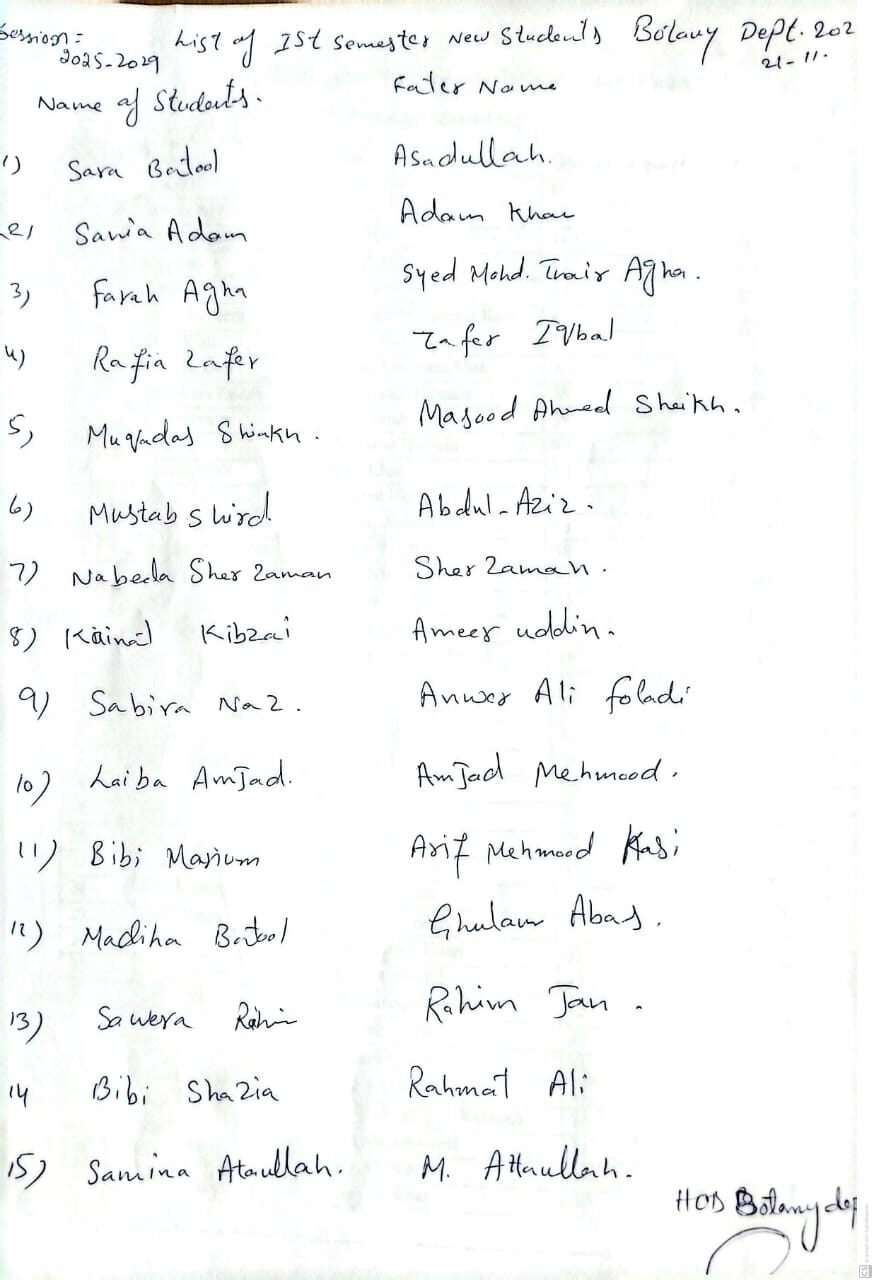 Session: List of 1st Semester New Students Botany Dept. 202
2025-2029 21-11.
Name of Students. Fater Name
1) Sara Batool Asadullah.
2) Sania Adam Adam Khan
3) Farah Agha Syed Mohd. Agha.
4) Rafia Zafer Zafer Iqbal
5) Muqadas Masood Ahmed Sheikh.
6) Abdul-Aziz.
7) Nabeela Sher Zaman Sher Zaman.
8) Kainat Kibzai Ameer uddin.
9) Sabira Naz. Anwer Ali foladi
10) Laiba Amjad. Amjad Mehmood.
11) Bibi Marium Arif Mehmood Kasi
12) Madiha Batool Ghulam Abas.
13) Sawera Rahim Rahim Jan.
14 Bibi Shazia Rahmat Ali
15) Samina Ataullah. M. Attaullah.
HOD Botany dep